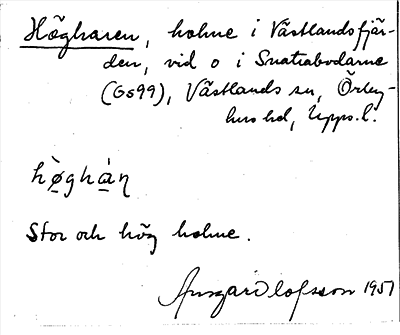 Högharen, holme i Västlandsfjär-
den, vid o i Snatrabodarne
(Gs99), Västlands sn, Örby-
hus hd, Upps. l.
hø̀ghàṇ
Stor och hög holme.
Ansgar Olofsson 1951